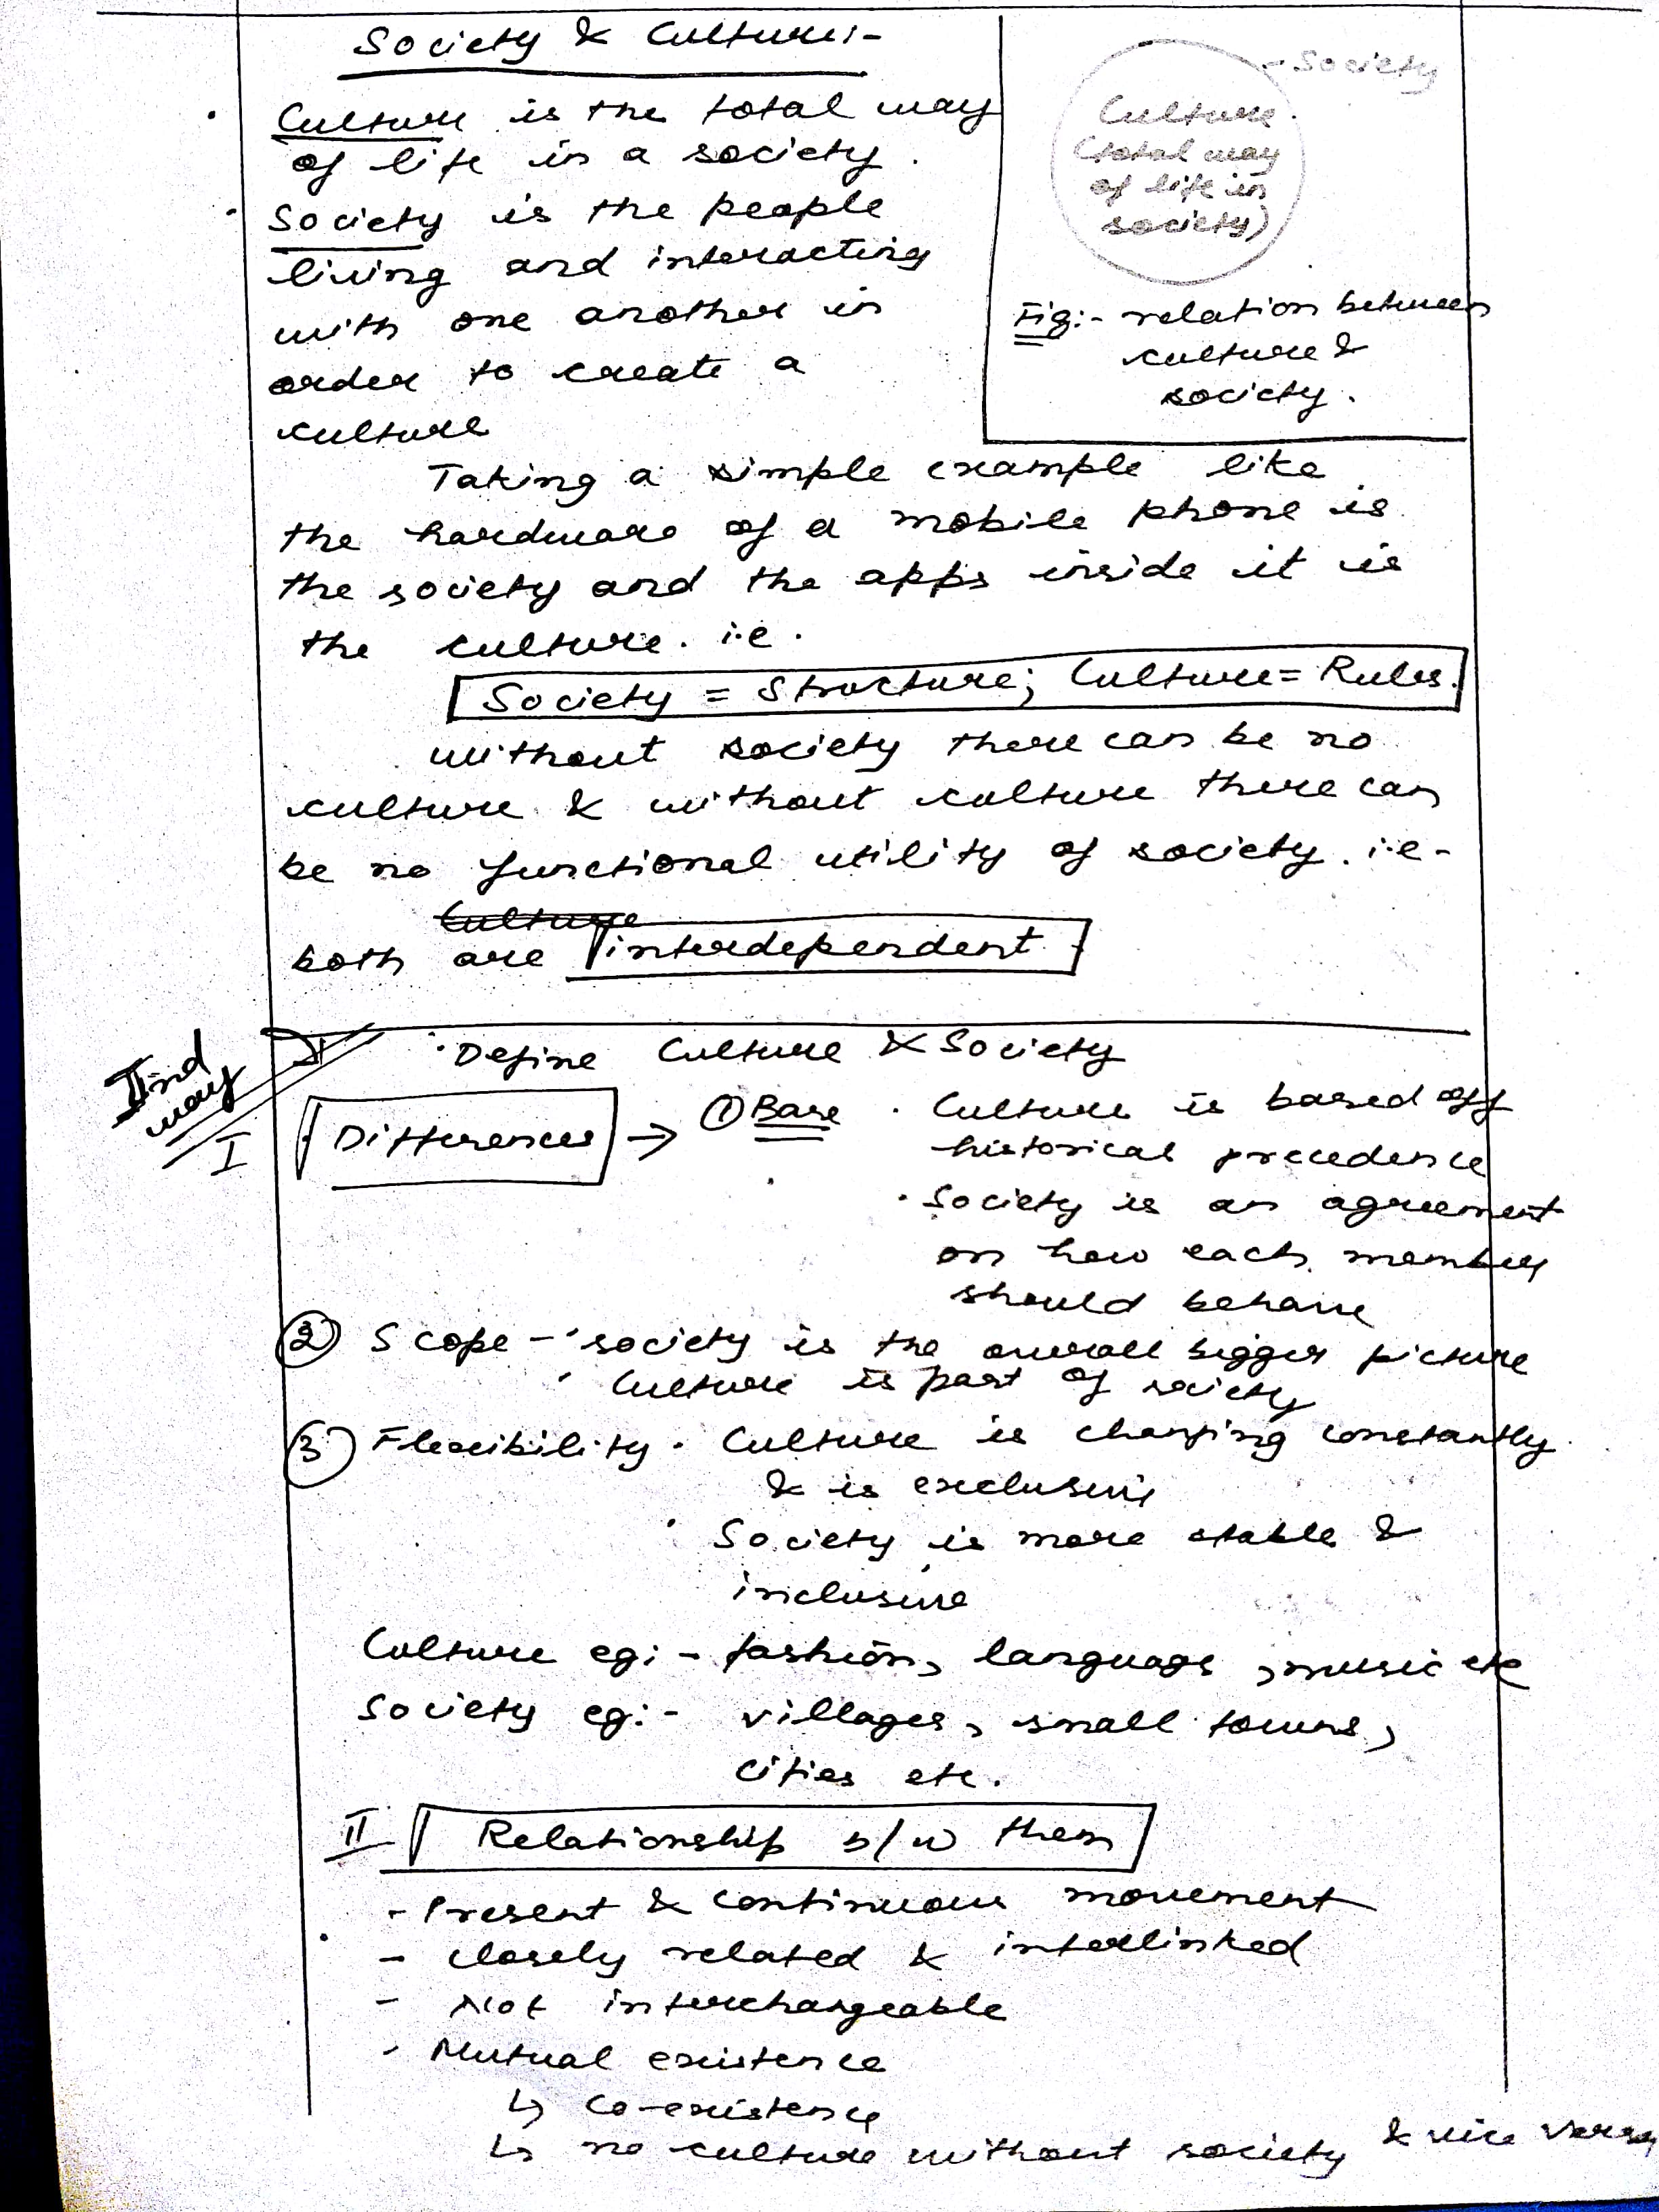 Society & Culture:-
• Culture is the total way
of life in a society.
• Society is the people
living and interacting
with one another in
order to create a
culture
- Society
Culture.
(total way
of life in
society)
Fig:- relation between
culture &
society.
Taking a simple example like
the hardware of a mobile phone is
the society and the apps inside it is
the culture. i.e.
Society = Structure; Culture = Rules.
without society there can be no
culture & without culture there can
be no functional utility of society. i.e-
Culture
both are interdependent
IInd
way
• Define Culture & Society
I Differences → ① Base • Culture is based off
historical precedence
• Society is an agreement
on how each member
should behave
② Scope - • society is the overall bigger picture
• Culture is part of society
③ Flexibility • Culture is changing constantly
& is exclusive
• Society is more stable &
inclusive
Culture eg:- fashion, language, music etc
Society eg:- villages, small towns,
cities etc.
II Relationship b/w them
- Present & continuous movement
- closely related & interlinked
- Not interchangeable
- Mutual existence
↳ co-existence
↳ no culture without society & vice versa